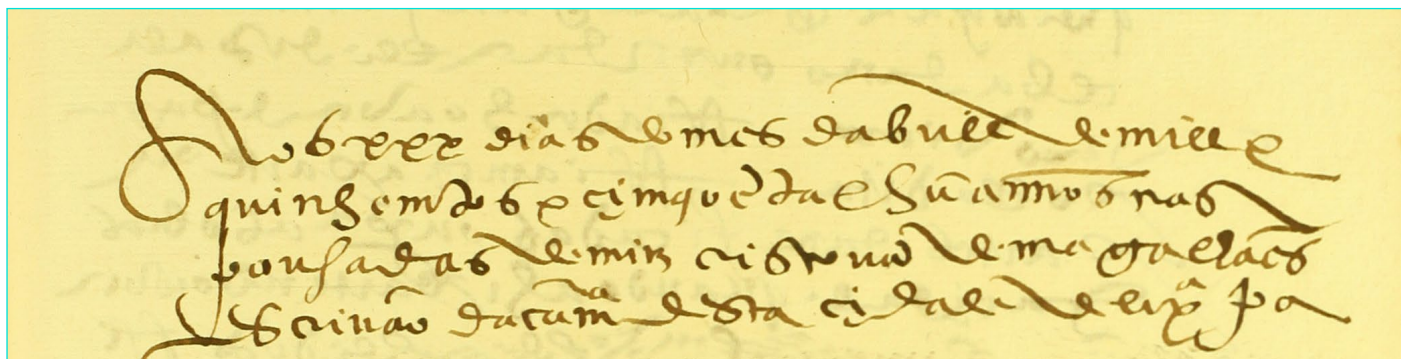 Aos xxx dias do mes dabrill de mill e
quinhemtos e cimquoẽta e hũ annos nas
pousadas de mim cristovã de magalhães
escrivão da camª desta cidade de lixª pa